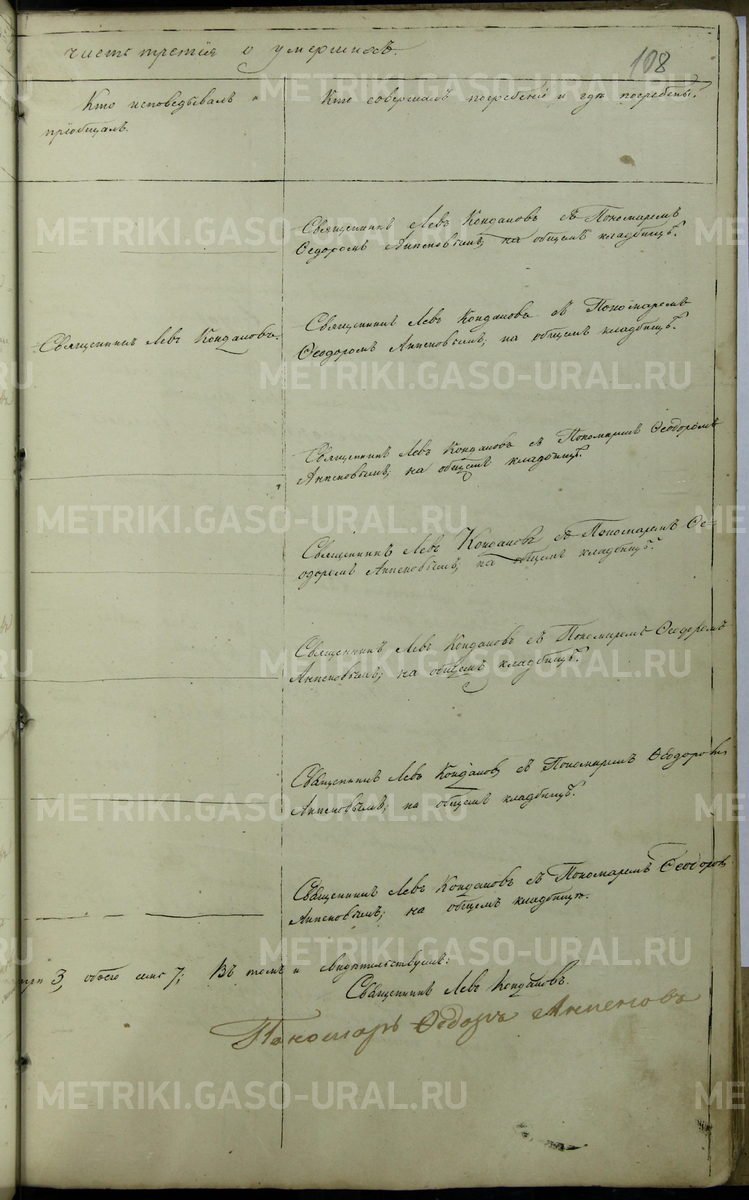 часть третія о умершихъ.
108
Кто исповѣдывалъ и
пріобщалъ.
Кто совершалъ погребеніе и гдѣ погребены?
Священникъ Левъ Кондаковъ съ Пономаремъ
Ѳедоромъ Анпеновымъ, на общемъ кладбищѣ.
Священникъ Левъ Кондаковъ.
Священникъ Левъ Кондаковъ съ Пономаремъ
Ѳеодоромъ Анпеновымъ; на общемъ кладбищѣ.
Священникъ Левъ Кондаковъ съ Пономаремъ Ѳеодоромъ
Анпеновымъ; на общемъ кладбищѣ.
Священникъ Левъ Кондаковъ съ Пономаремъ Ѳе-
одоромъ Анпеновымъ, на общемъ кладбищѣ.
Священникъ Левъ Кондаковъ съ Пономаремъ Ѳеодоромъ
Анпеновымъ; на общемъ кладбищѣ.
Священникъ Левъ Кондаковъ съ Пономаремъ Ѳеодором
Анпеновымъ; на общемъ кладбищѣ.
Священникъ Левъ Кондаковъ съ Пономаремъ Ѳеодоро
Анпеновымъ; на общемъ кладбищѣ.
3, обоего семь 7; Въ томъ и свидѣтельствуемъ:
Священникъ Левъ Кондаковъ.
Пономарь Ѳедоръ Анпеновъ
METRIKI.GASO-URAL.RU